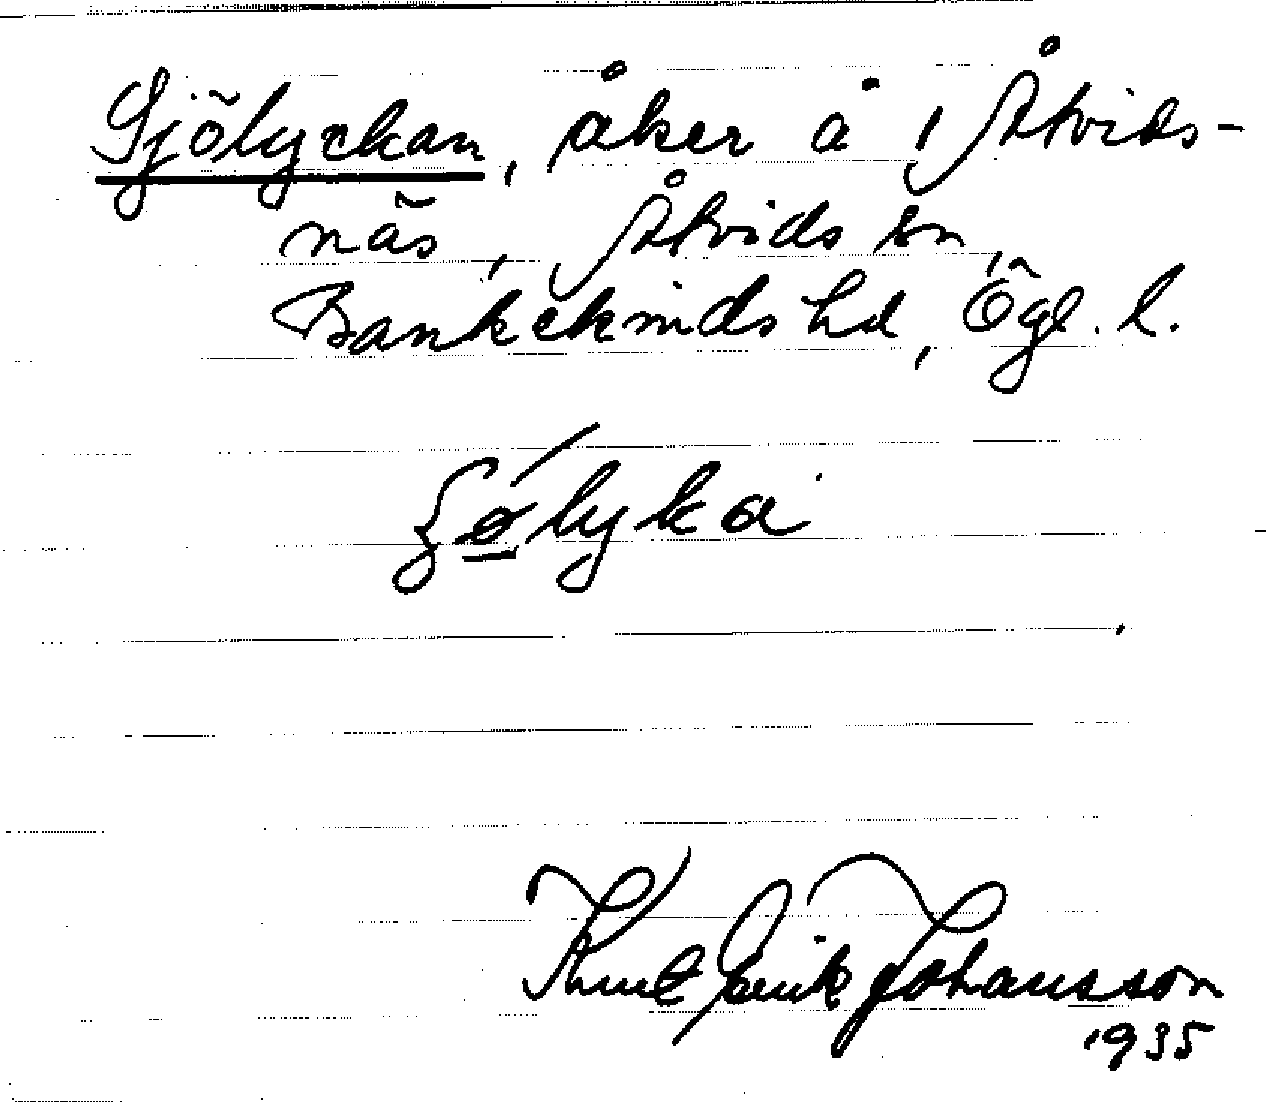 Sjölyckan, åker å Åtvids-
näs, Åtvids sn,
Bankekinds hd, Ögl. l.
ʃö́lyka
Knut Erik Johansson
1935